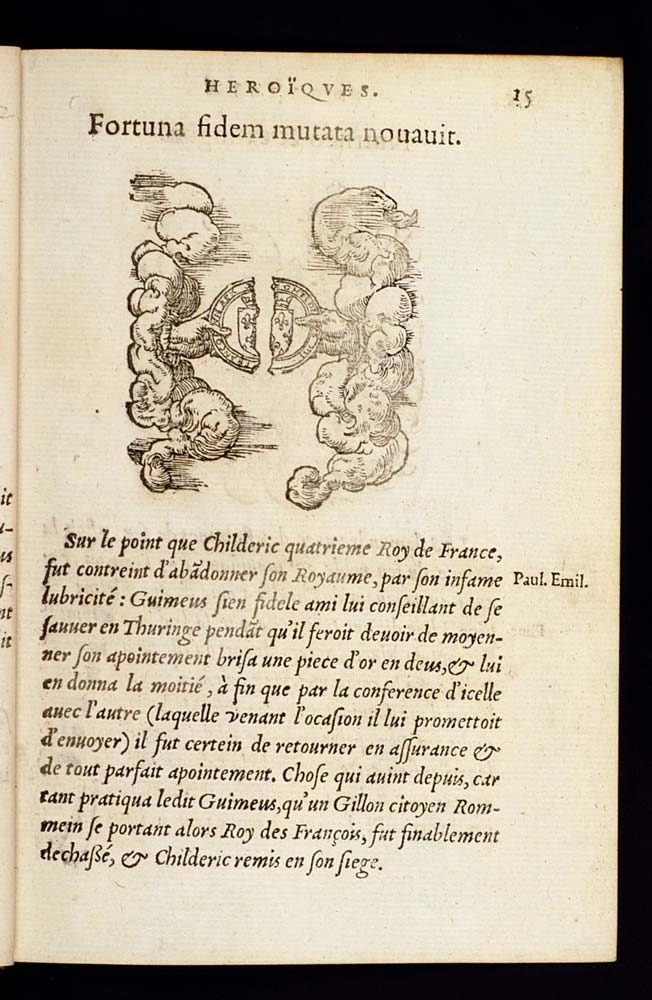 HEROÏQVES.
15
Fortuna fidem mutata nouauit.
Sur le point que Childeric quatrieme Roy de France,
fut contreint d'abãdonner ſon Royaume, par ſon infame
Paul. Emil.
lubricité : Guimeus ſien fidele ami lui conſeillant de ſe
ſauuer en Thuringe pendãt qu'il feroit deuoir de moyen-
ner ſon apointement briſa une piece d'or en deus, & lui
en donna la moitié, à fin que par la conference d'icelle
auec l'autre (laquelle venant l'ocaſion il lui promettoit
d'enuoyer) il fut certein de retourner en aſſurance &
de tout parfait apointement. Choſe qui auint depuis, car
tant pratiqua ledit Guimeus, qu'un Gillon citoyen Rom-
mein ſe portant alors Roy des François, fut finablement
dechaßé, & Childeric remis en ſon ſiege.